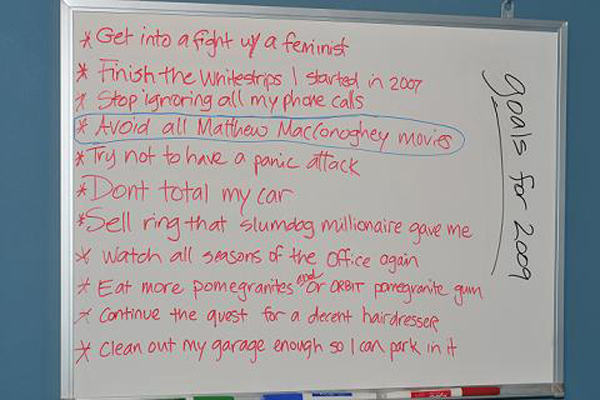 goals for 2009
* Get into a fight w/ a feminist
* Finish the Whitestrips I started in 2007
* Stop ignoring all my phone calls
* Avoid all Matthew MacConoghey movies
* Try not to have a panic attack
* Dont total my car
* Sell ring that slumdog millionaire gave me
* Watch all seasons of the Office again
* Eat more pomegranites and/or ORBIT pomegranite gum
* Continue the quest for a decent hairdresser
* Clean out my garage enough so I can park in it